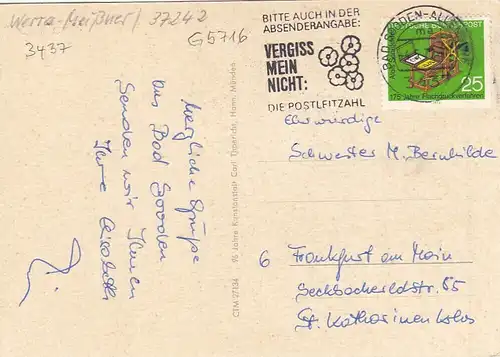 Werra-Meißner / 37242
3437
G5716
BITTE AUCH IN DER
ABSENDERANGABE:
VERGISS
MEIN
NICHT:
DIE POSTLEITZAHL
DEUTSCHE BUNDESPOST
25
175 Jahre Flachdruckverfahren
herzliche Grüße
aus Bad Sooden
senden wir Ihnen
Ihre
CTM 27134 96 Jahre Kunstanstalt Carl Thoericht, Hann. Münden
Ehrwürdige
Schwester M. Bernhilde
6 Frankfurt am Main
Seckbacher 55
St. Katharinen